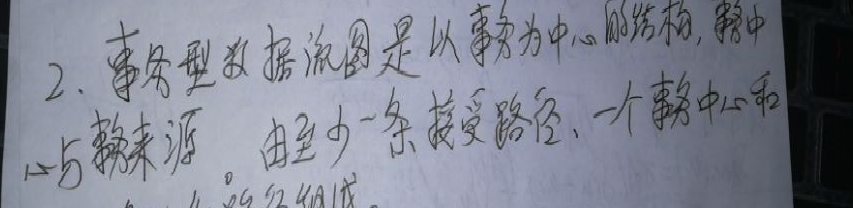 2、事务型数据流图是以事务为中心的结构,事务中
心与事务来源 由至少一条接受路径、一个事务中心和
路径组成。